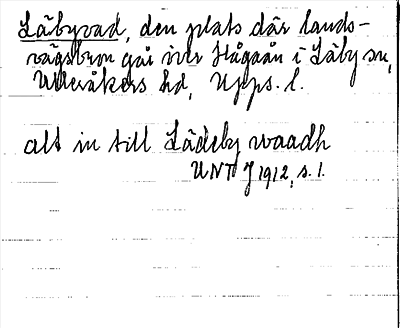 Läbyvad, den plats där lands-
vägsbron går över Hågaån i Läby sn,
Ulleråkers hd, Upps. l.
allt in till Lädeby waadh
UNT J 1912, s. 1.